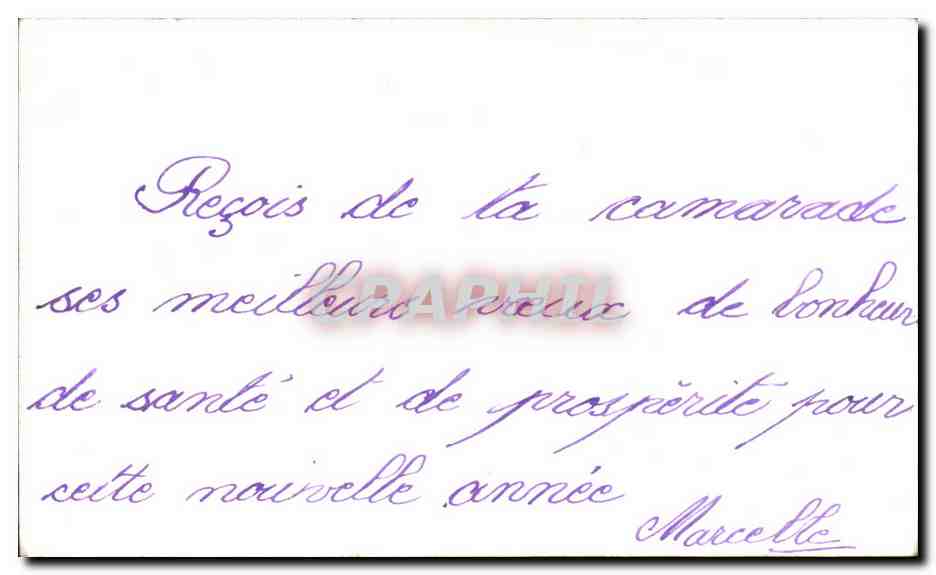 Reçois de ta camarade
ses meilleurs vœux de bonheur
de santé et de prospérité pour
cette nouvelle année
Marcelle
CPAPHIL